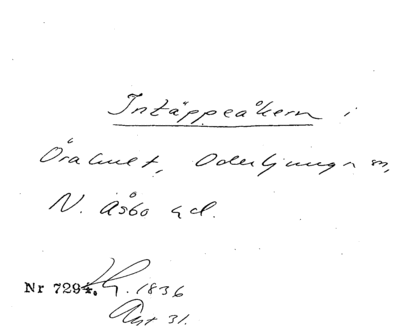 Intäppeåkern i
Örahult, Oderljunga sn,
N. Åsbo hd.
Nr 7294. 1836
31.